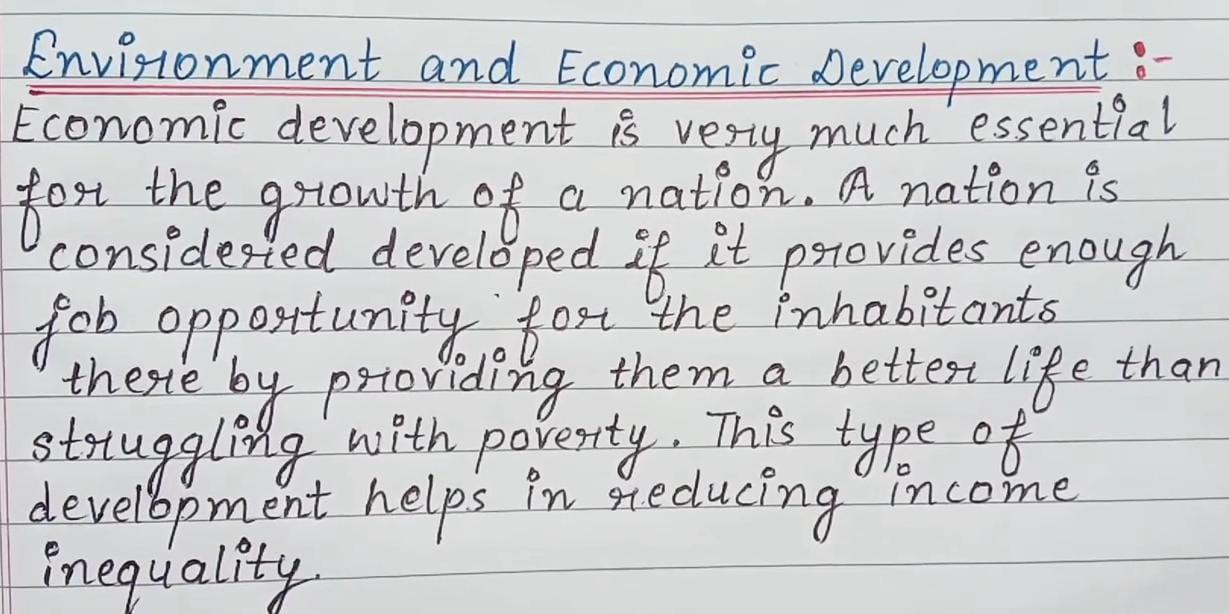 Environment and Economic Development :-
Economic development is very much essential
for the growth of a nation. A nation is
considered developed if it provides enough
job opportunity for the inhabitants
there by providing them a better life than
struggling with poverty. This type of
development helps in reducing income
inequality.